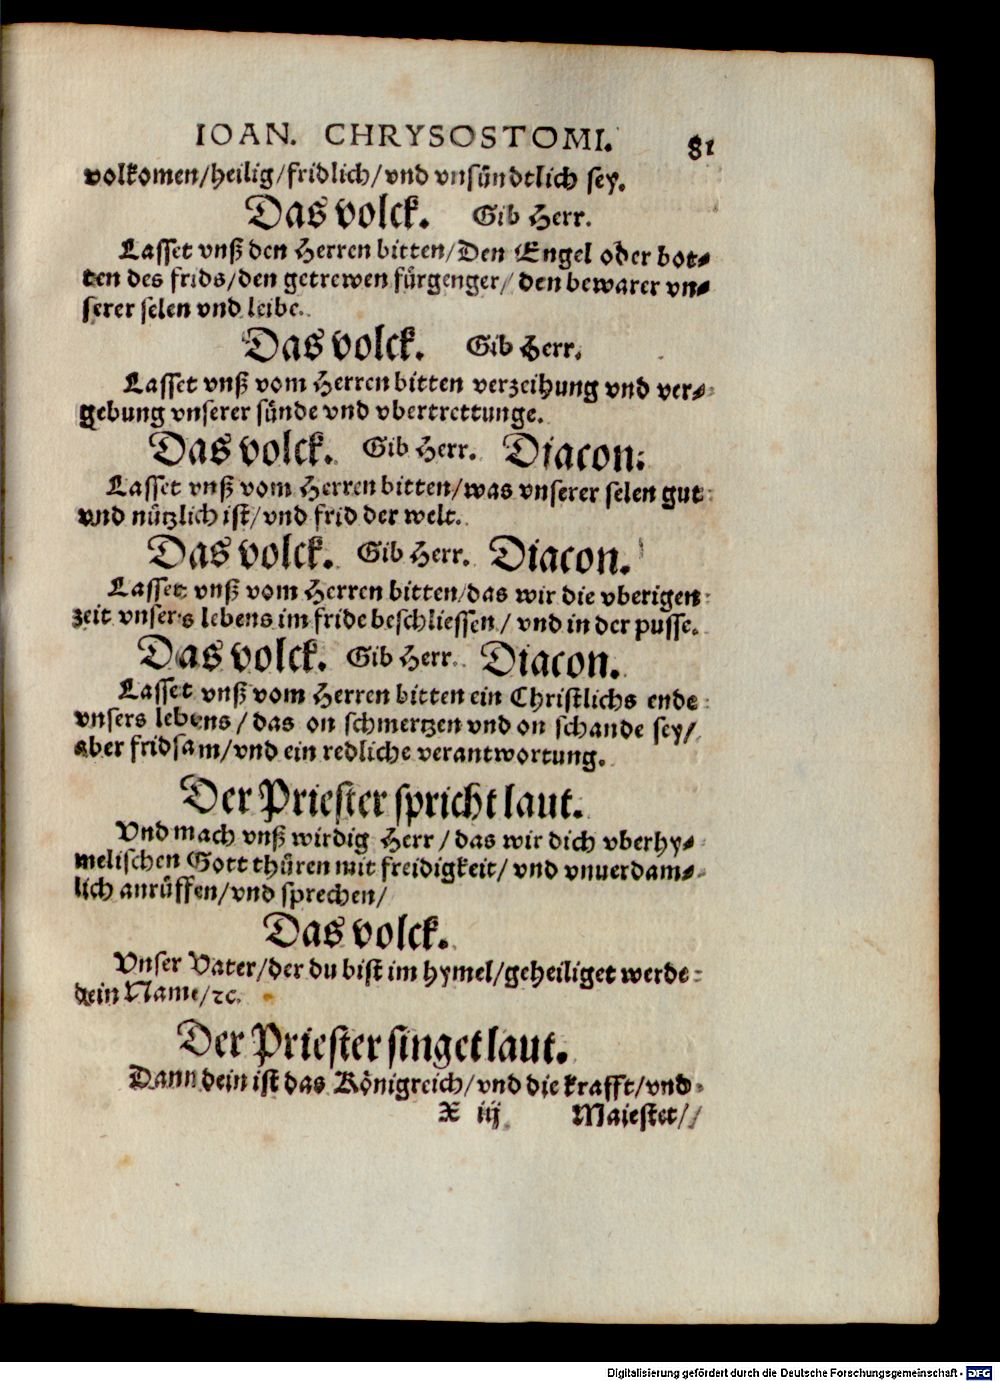 IOAN. CHRYSOSTOMI. 81
volkomen/heilig/fridlich/vnd vnsündtlich sey.
Das volck. Gib Herr.
Lasset vnß den Herren bitten/Den Engel oder bot⸗
ten des frids/den getrewen fürgenger/ den bewarer vn⸗
serer selen vnd leibe.
Das volck. Gib Herr.
Lasset vnß vom Herren bitten verzeihung vnd ver⸗
gebung vnserer sünde vnd vbertrettunge.
Das volck. Gib Herr. Diacon.
Lasset vnß vom Herren bitten/was vnserer selen gut
vnd nützlich ist/vnd frid der welt.
Das volck. Gib Herr. Diacon.
Lasset vnß vom Herren bitten/das wir die vberigen
zeit vnsers lebens im fride beschliessen/ vnd in der pusse.
Das volck. Gib Herr. Diacon.
Lasset vnß vom Herren bitten ein Christlichs ende
vnsers lebens/ das on schmertzen vnd on schande sey/
aber fridsam/vnd ein redliche verantwortung.
Der Priester spricht laut.
Vnd mach vnß wirdig Herr/ das wir dich vberhy⸗
melischen Gott thüren mit freidigkeit/ vnd vnuerdam⸗
lich anrüffen/vnd sprechen/
Das volck.
Vnser Vater/der du bist im hymel/geheiliget werde
dein Name/ꝛc.
Der Priester singet laut.
Dann dein ist das Königreich/vnd die krafft/vnd
X iij Maiestet/
Digitalisierung gefördert durch die Deutsche Forschungsgemeinschaft - DFG